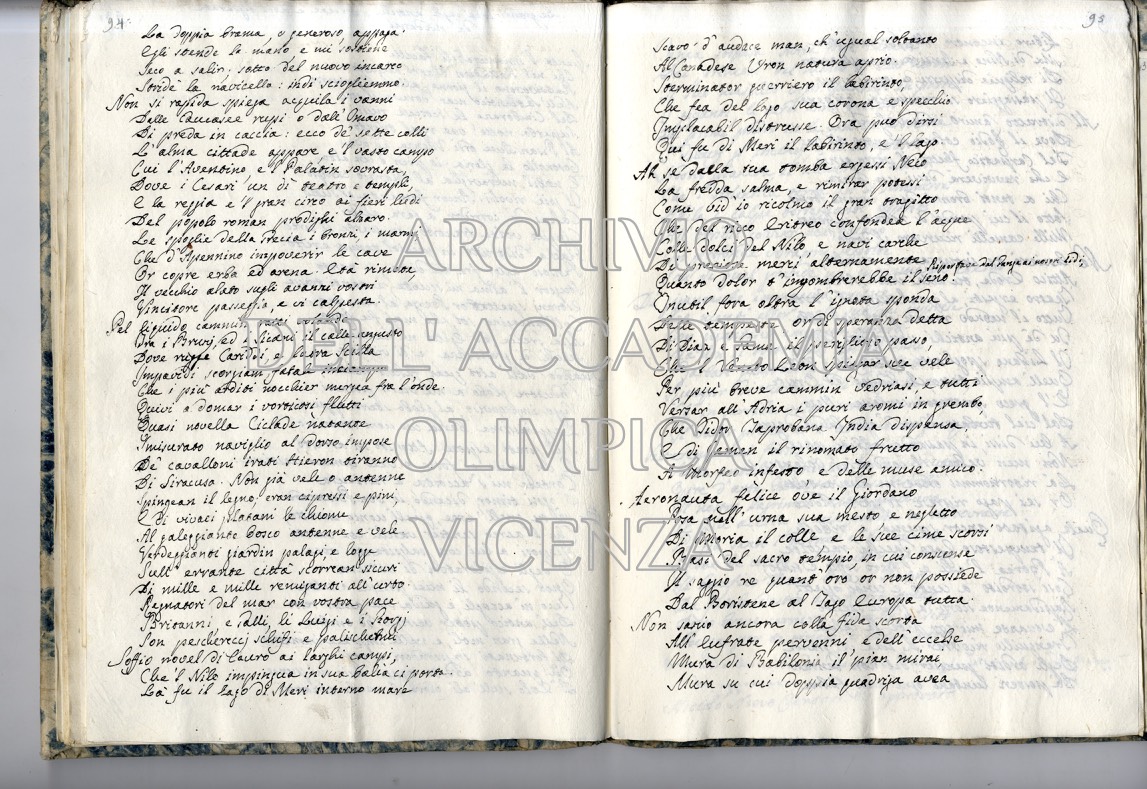 94
La doppia brama, o generoso, appaga.
Egli stende la mano e mi sostiene
Seco a salir; sotto del nuovo incarco
Stride la navicella: indi sciogliemmo.
Non sì rapida spiega acquila i vanni
Delle Caucasee rupi o dall'
Di preda in caccia: ecco de' sette colli
L'alma cittade appare e 'l vasto campo
Cui l'Aventino e 'l Palatin sovrasta,
Dove i Cesari un dì teatro e templi,
E la reggia e 'l gran circo ai fieri ludi
Del popolo roman prodighi alzaro.
Le spoglie della Grecia i bronzi, i marmi
Che d'Apennino impoverir le cave
Or copre erba ed arena. Età rimove
Il vecchio alato sugli avanzi vostri
Vincitore passeggia, e vi calpesta.
Pel liquido cammin
Tra i Bruzj, ed i Sicani il calle angusto
Dove rugge Cariddi, e Scilla
Impavidi scorgiam fatale
Che i più arditi nocchier fra l'onde.
Quivi a domar i vorticosi flutti
Quasi novella Ciclade natante
Imisurato naviglio al dorso impose
De' cavalloni irati Hieron tiranno
Di Siracusa. Non già vele o antenne
Spingean il legno; eran cipressi e pini,
E di vivaci platani le chiome
Al galeggiante bosco antenne e vele
Verdeggianti giardin palagi, e logge
Sull'errante città scorrean sicuri
Di mille e mille remiganti all'urto.
Regnatori del mar con vostra pace
Britanni, e Galli, li Luigi e i Giorgj
Son pescherecj schifi e palischelmi
Soffio novel di Cauro ai larghi campi,
Che 'l Nilo impingua in sua balia ci porta.
Là fu il lago di Meri interno mare
95
Scavo d'audace man, ch'ugual soltanto
Al Canadese Uron natura aprio.
Sterminator guerriero il labirinto,
Che fea del lago sua corona e specchio
Implacabil distrusse. Ora può dirsi
Qui fu di Meri il labirinto, e 'l lago
Ah se dalla sua tomba ergessi Neco
La fredda salma, e rimirar potessi
Come vid'io ricolmo il gran tragitto
Che del ricco Eritreo confondea l'acque
Colle dolci del Nilo e navi carche
Di preziose merci alternamente
Quanto dolor t'ingombrerebbe il seno.
Inutil fora oltra l'ignota sponda
Delle tempeste or di speranza detta
Di Dian e Game il periglioso passo,
Che 'l Veneto Leon spiegar sue vele
Per più breve cammin vedriasi, e tutti
Versar all'Adria i puri aromi in grembo,
Che Tidor Taprobana India dispensa
E di Jemen il rinomato frutto
A Morfeo infesto e delle muse amico.
Aeronauta felice ov'è il Giordano
Posa nell'urna sua mesto e negletto
Di Moria il colle e le sue cime scorsi
Basi del sacro tempio, in cui consunse
Il saggio re quant'oro or non possiede
Dal Boristene al Tago Europa tutta.
Non sazio ancora colla fida scorta
All'Eufrate pervenni e dell'eccelse
Mura di Babilonia il pian mirai,
Mura su cui doppia quadriga avea
ARCHIVIO
DELL'ACCADEMIA
OLIMPICA
VICENZA